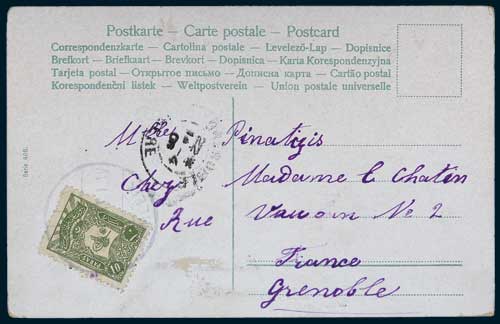 Postkarte – Carte postale – Postcard
Correspondenzkarte – Cartolina postale – Levelező-Lap – Dopisnice
Brefkort – Briefkaart – Brevkort – Dopisnica – Karta Korespondenzyjna
Tarjeta postal – Открытое письмо – Дописна карта – Cartão postal
Korespondenční listek – Weltpostverein – Union postale universelle
Pinatzis
Chez Madame le Chaten
Rue No 2
France
Grenoble
10